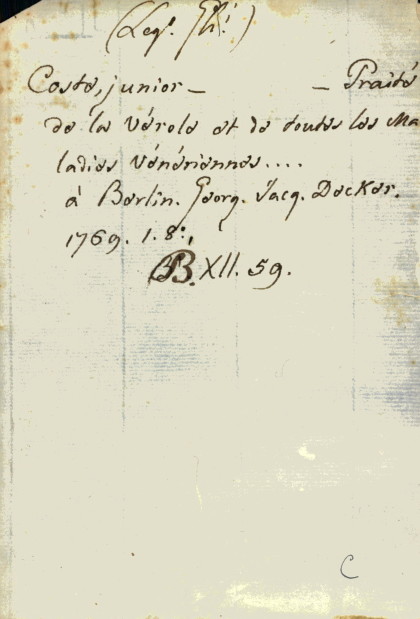 (Leg.
Coste, junior — — Traité
de la Vérole et de toutes les Ma
ladies Vénériennes....
à Berlin. Georg. Jacq. Decker.
1769. 1. 8:,
BB. XII. 59.
C